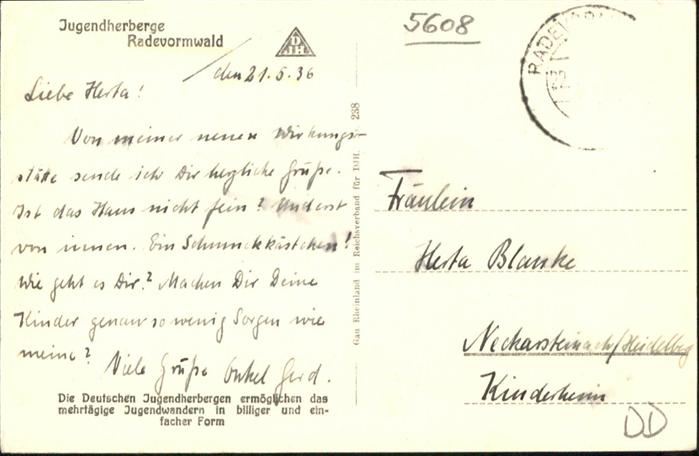 Jugendherberge
Radevormwald
DJH
5608
RADEVORM
den 21.5.36
Liebe Herta!
Von meiner neuen Wirkungs-
stätte sende ich Dir herzliche Grüße.
Ist das Haus nicht fein? Und erst
von innen. Ein Schmuckkästchen!
Wie geht es Dir? Machen Dir Deine
Kinder genau so wenig Sorgen wie
meine?
Viele Grüße Onkel Gerd.
Die Deutschen Jugendherbergen ermöglichen das
mehrtägige Jugendwandern in billiger und ein-
facher Form
Gau Rheinland im Reichsverband für DJH. 238
Fräulein
Herta Blanke
Neckarsteinach/Heidelberg
Kinderheim
DD